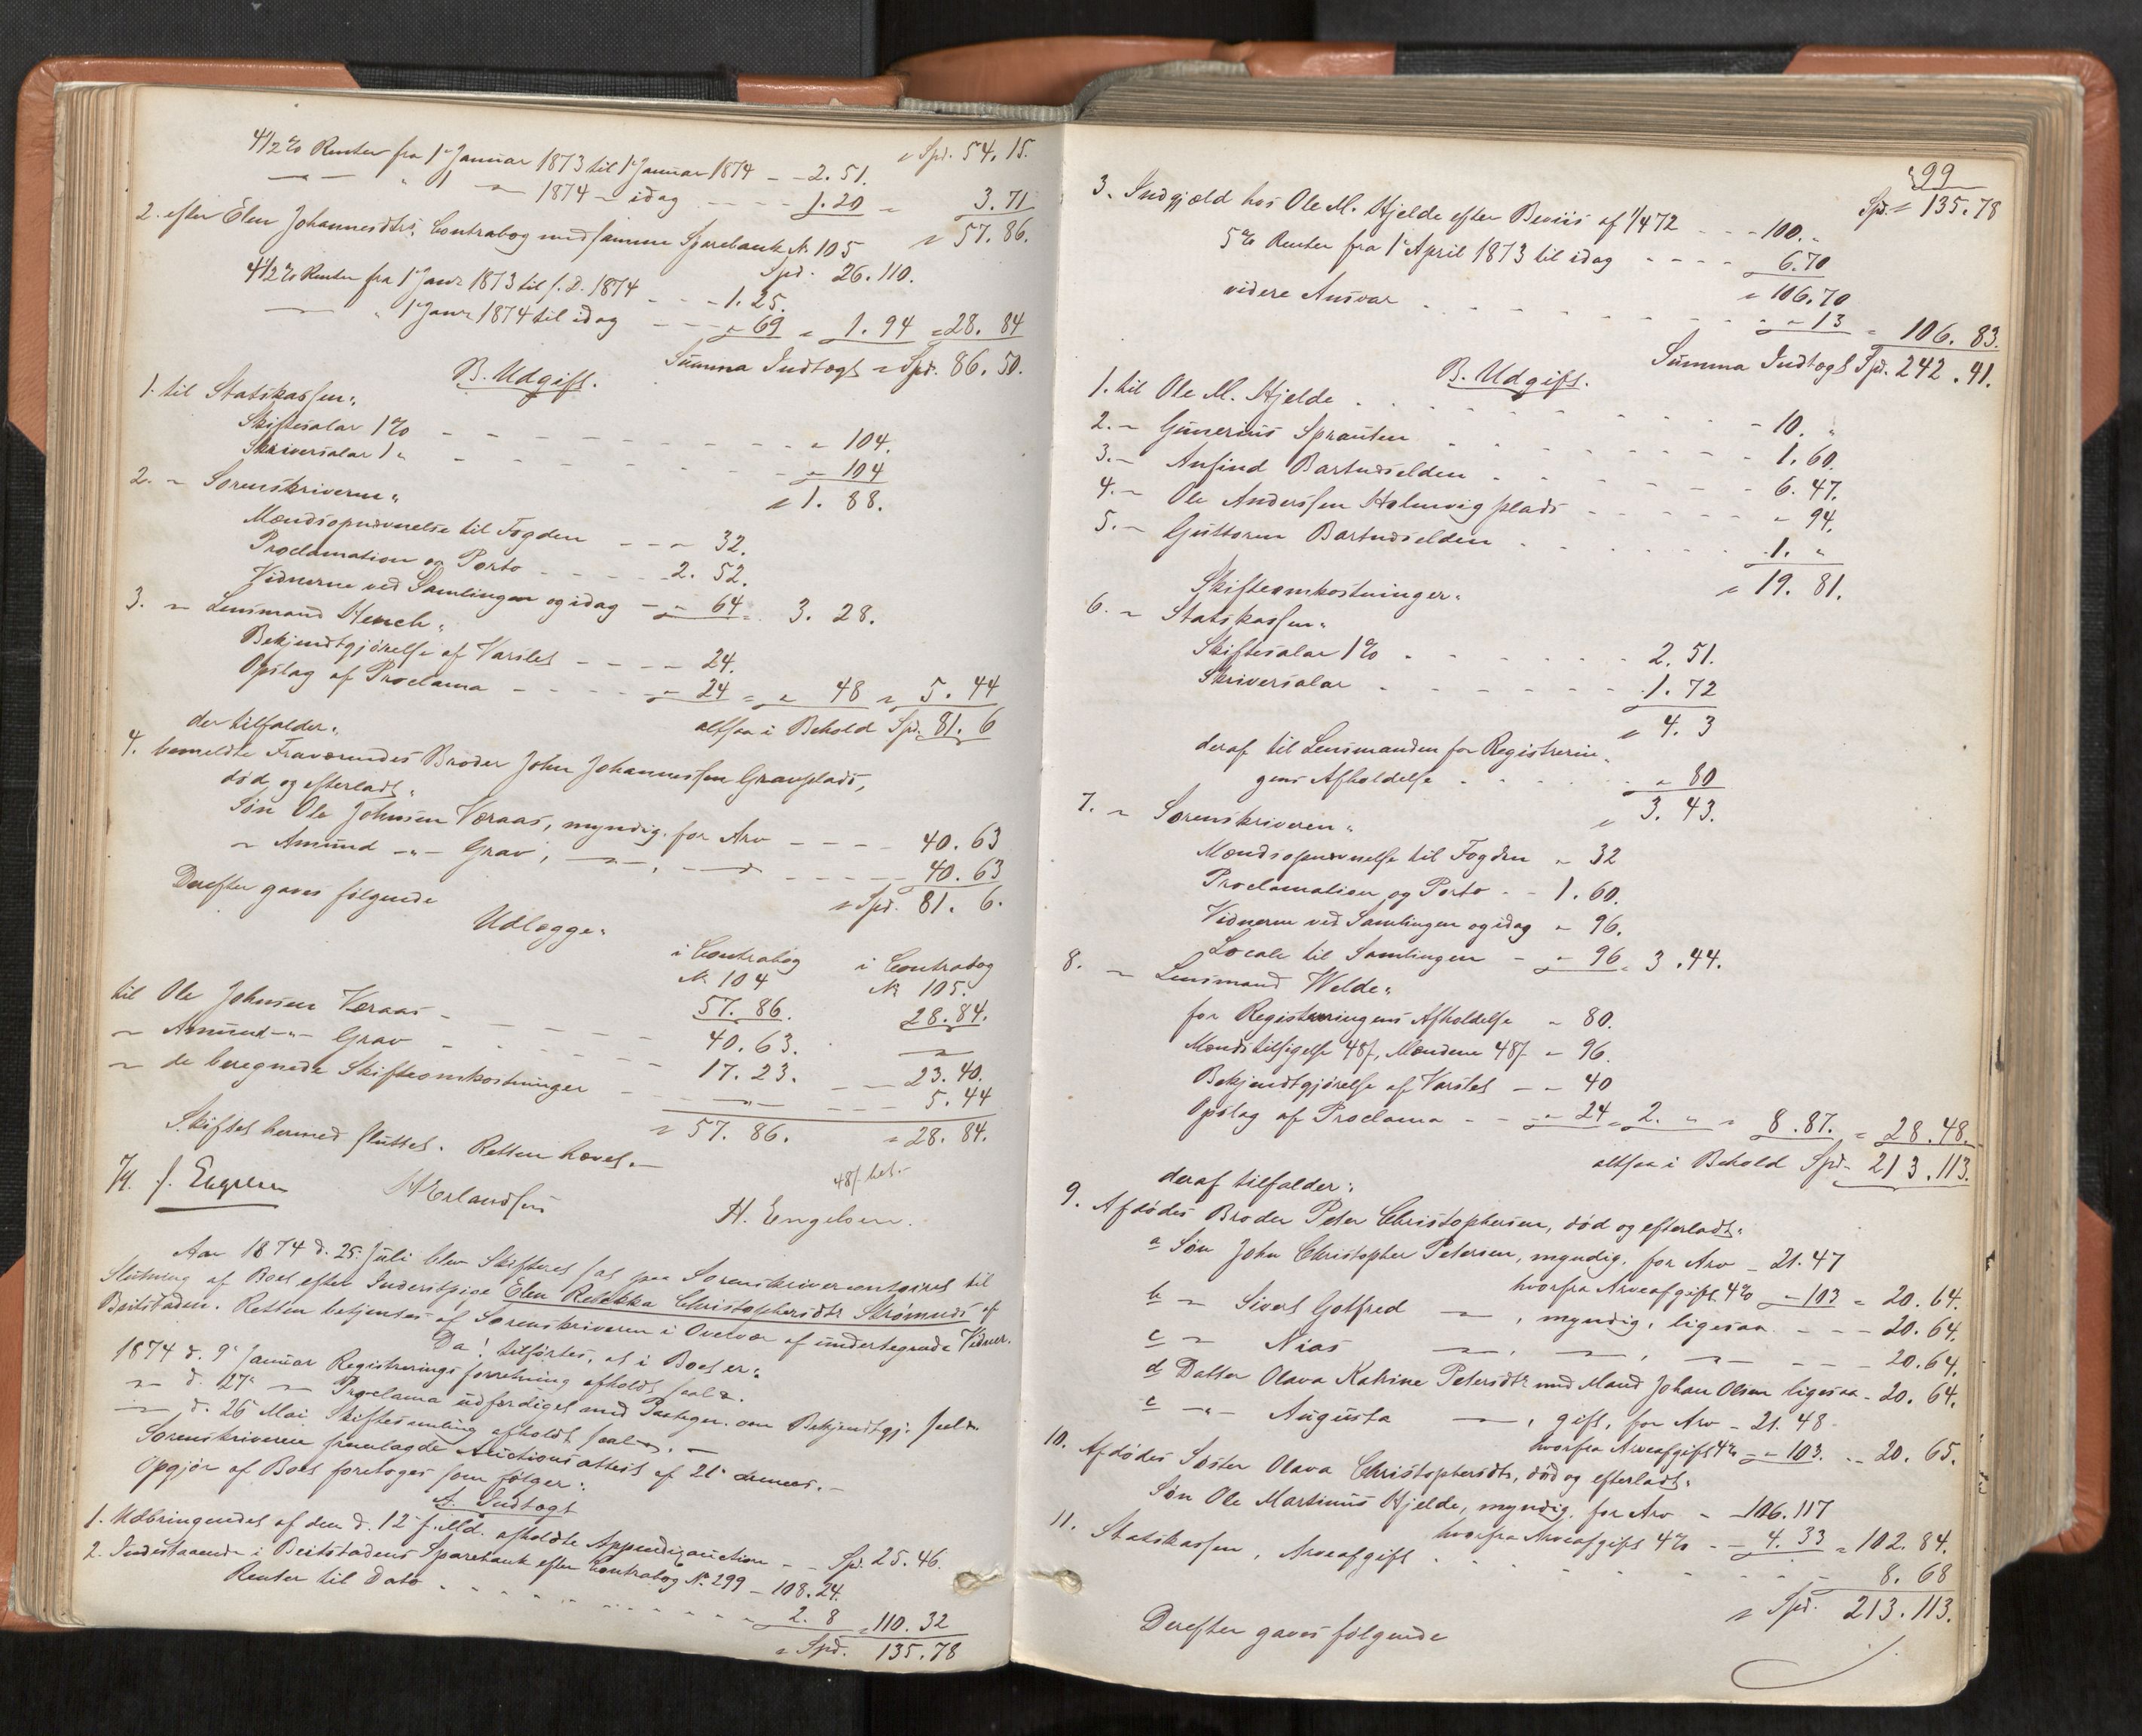 " Spd. 54. 15.
4 1/2 % Renter fra 1' Januar 1873 til 1' Januar 1874 - - 2. 51.
— — " 1 — 1874 - idag - - - - 1. 20 - 3. 71
" 57. 86.
2. efter Elen Johannesdtrs: Contrabog med samme Sparebank No 105
Spd. 26. 110.
4 1/2 % Renter fra 1' Janr 1873 til s. D. 1874 - - - 1. 25.
— " 1' Janr 1874 til idag - - - " 69 = 1. 94 = 28. 84
Summa Indtægt = Spd. 86. 50.
B. Udgift.
1. til Statskassen:
Skiftesalar 1 % - - - - " 104.
Skriversalar 1 " - - - - " 104
" 1. 88.
2. - Sorenskriveren:
Mændsopnævnelse til Fogden - - - 32.
Proclamation og Porto - - - - 2. 52.
Vidnerne ved Samlingen og idag - " 64 = 3. 28.
3. - Lensmand Hench:
Bekjendtgjørelse af Varslet - - - - 24.
Opslag af Proclama - - - - " 24 = " 48 " 5. 44
altsaa i Behold Spd. 81. 6
der tilfalder:
4. bemeldte Fraværendes Broder John Johannessen Gravplads,
død og efterladt:
Søn Ole Johnsen Væraas, myndig, for Arv - - - - 40. 63
" Amund -"- Grav, — , — - - - - 40. 63
" Spd. 81. 6.
Derefter gaves følgende
Udlægge:
i Contrabog i Contrabog
No 104 No 105.
57. 86. 28. 84.
til Ole Johnsen Væraas - - - - 40. 63. —
" Amund -"- Grav - - - - 17. 23. - - 23. 40.
" de beregnede Skifteomkostninger - - —"— - - - 5. 44
" 57. 86. " 28. 84.
Skiftet hermed sluttet. Retten hævet. —
48/ bet.
H. Engelsen.
Aar 1874 d. 25' Juli blev Skifteret sat paa Sorenskrivercontoiret til
Slutning af Boet efter Inderstpige Elen Rebekka Christophersdtr Strømnes af
Beitstaden. Retten betjentes af Sorenskriveren i Overvær af undertegnede Vidner.
Da! tilførtes, at i Boet er:
1874 d. 9' Januar Registreringsforretning afholdt
— d. 27' — Proclama udfærdiget med Paategn. om Bekjendtgj.
— d. 26 Mai Skiftesamling afholdt
Sorenskriveren fremlagde Auctionsattest af 21'
Opgjør af Boet foretoges som følger:
A. Indtægt
1. Udbringendet af den d. 12' f. Md. afholdte Appendixauction - - Spd. 25. 46.
2. Indestaaende i Beitstadens Sparebank efter Contrabog No 299 - 108. 24.
Renter til Dato - - - - 2. 8 = 110. 32
" Spd. 135. 78
99
Spd. = 135. 78
3. Indgjæld hos Ole M. Hjelde efter Beviis af 1/4 72 - - - 100. "
5 % Renter fra 1' April 1873 til idag - - - - 6. 70
" 106. 70
videre Ansvar - - - - " 13 = 106. 83.
Summa Indtægt Spd. 242. 41.
B. Udgift.
1. til Ole M. Hjelde - - - - 10. "
2. - Gunerius Sprauten - - - - 1. 60.
3. - Anfind Bartnæselden - - - - 6. 47.
4. - Ole Anderssen Holmvig plads - - - - " 94.
5. - Guttorm Bartnæselden - - - - 1. "
" 19. 81.
Skifteomkostninger:
6. - Statskassen:
Skiftesalar 1 % - - - - 2. 51.
Skriversalar - - - - 1. 72
" 4. 3
deraf til Lensmanden for Registrerin-
gens Afholdelse - - - - " 80
" 3. 43.
7. - Sorenskriveren:
Mændsopnævnelse til Fogden " 32
Proclamation og Porto - - 1. 60.
Vidnerne ved Samlingen og idag " 96.
Locale til Samlingen - " 96 = 3. 44.
8. - Lensmand Welde:
for Registreringens Afholdelse " 80.
Mændstilsigelse 48/, Mændene 48/ " 96.
Bekjendtgjørelse af Varslet - " 40
Opslag af Proclama - - " 24 = 2. " " 8. 87. = 28. 48.
altsaa i Behold Spd. 213. 113.
deraf tilfalder:
9. Afdødes Broder Peter Christophersen, død og efterladt:
a Søn John Christopher Petersen, myndig, for Arv - 21. 47
hvorfra Arveafgift 4 % - 103 = 20. 64.
b " Sivert Gotfred — , myndig, ligesaa - - - 20. 64.
c " Nias — , — , — - - - 20. 64.
d Datter Olava Katrine Petersdtr med Mand Johan Olsen ligesaa - 20. 64.
e -"- Augusta — , gift, for Arv - 21. 48
hvorfra Arveafgift 4 % - " 103. - - 20. 65.
10. Afdødes Søster Olava Christophersdtr, død og efterladt:
Søn Ole Martinus Hjelde, myndig, for Arv - 106. 117
hvorfra Arveafgift 4 % - - 4. 33 = 102. 84.
11. Statskassen, Arveafgift - - - - 8. 68
" Spd. 213. 113.
Derefter gaves følgende